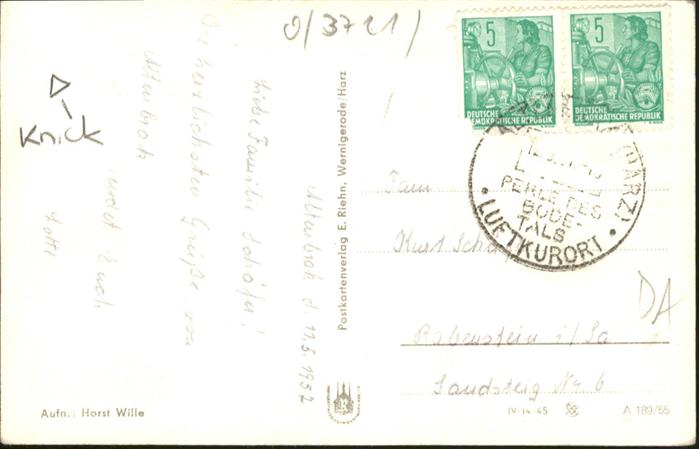 0/3721/
Knick
Altenbrak d. 11.5.1957
Liebe Familie Schäfer!
Die herzlichsten Grüße von
Altenbrak
sendet Euch
Lotte
Aufn.: Horst Wille
Postkartenverlag E. Riehn, Wernigerode/Harz
5
DEUTSCHE
DEMOKRATISCHE REPUBLIK
5
DEUTSCHE
DEMOKRATISCHE REPUBLIK
(HARZ)
PERLE DES
BODE-
TALS
• LUFTKURORT •
Fam
Kurt Schä
Rabenstein i/Sa
Landsteig Nr. 6
DA
IV-14-45
A 189/55